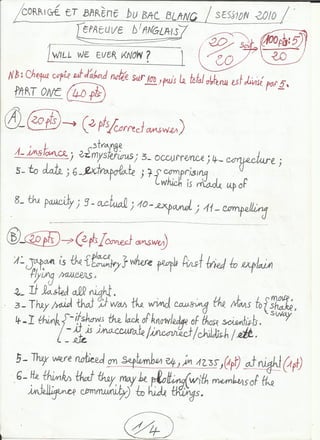 CORRIGÉ ET BARÈME DU BAC BLANC / SESSION 2010 /
EPREUVE D'ANGLAIS
20/20 soit (100pts:5)/20
WILL WE EVER KNOW?
NB: Chaque copie est d'abord notée sur 100, puis le total obtenu est divisé par 5.
PART ONE (40 pts)
A (20pts) → (2pts/correct answer)
1- instance; 2- {strange mysterious; 3- occurrence; 4- conjecture;
5- to date; 6- extrapolate; 7 { comprising
which is made up of
8- the paucity; 9- actual; 10- expand; 11- compelling
B (20pts) → (2pts/correct answer)
1- Japan is the {place country} where people first tried to explain
flying saucers.
2- It lasted all night.
3- They said that it was the wind causing the stars to { move. shake. sway
4- I think { - it shows the lack of knowledge of those scientists.
- it is inaccurate/incorrect/childish/etc.
- etc
5- They were noticed on September 24, in 1235, (1pt) at night (1pt)
6- He thinks that they may be plotting (with members of the
intelligence community) to hide things.
1/4